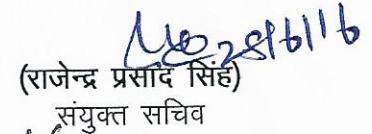 28/6/16
(राजेन्द्र प्रसाद सिंह)
संयुक्त सचिव